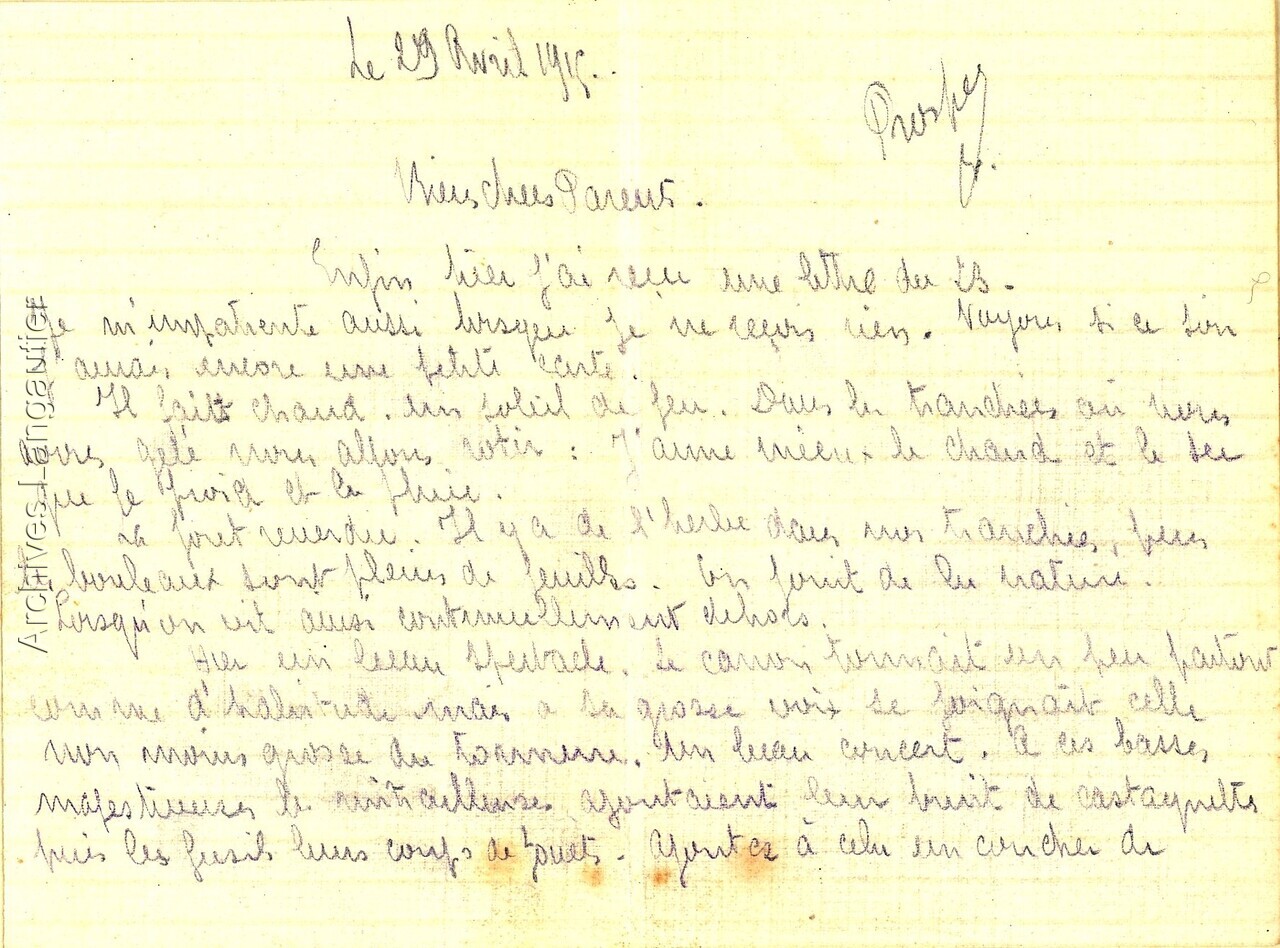 Le 29 Avril 1915..
Prosper
Biens chers Parents.
Enfin hier j'ai reçu une lettre du 23.
Je m'impatiente aussi lorsque je ne reçois rien. Voyons si ce soir
j'aurais encore une petite carte.
Il fait chaud. un soleil de feu. Dans les tranchées où nous
avons gelé nous allons rotir : J'aime mieux le chaud et le sec
que le froid et la pluie.
La foret reverdie. Il y a de l'herbe dans nos tranchées,
les bouleaux sont pleins de feuilles. On jouit de la nature.
Lorsqu'on vit aussi continuellement dehors.
Hier un beau spectacle. Le canon tonnait un peu partout
comme d'habitude mais a sa grosse voix se joignait celle
non moins grosse du tonnerre. Un beau concert. A ces basses
majestueuses les mitrailleuses ajoutaient leur bruit de castagnettes
puis les fusils leurs coups de fouets. Ajoutez à cela un coucher de
Archives Langautier